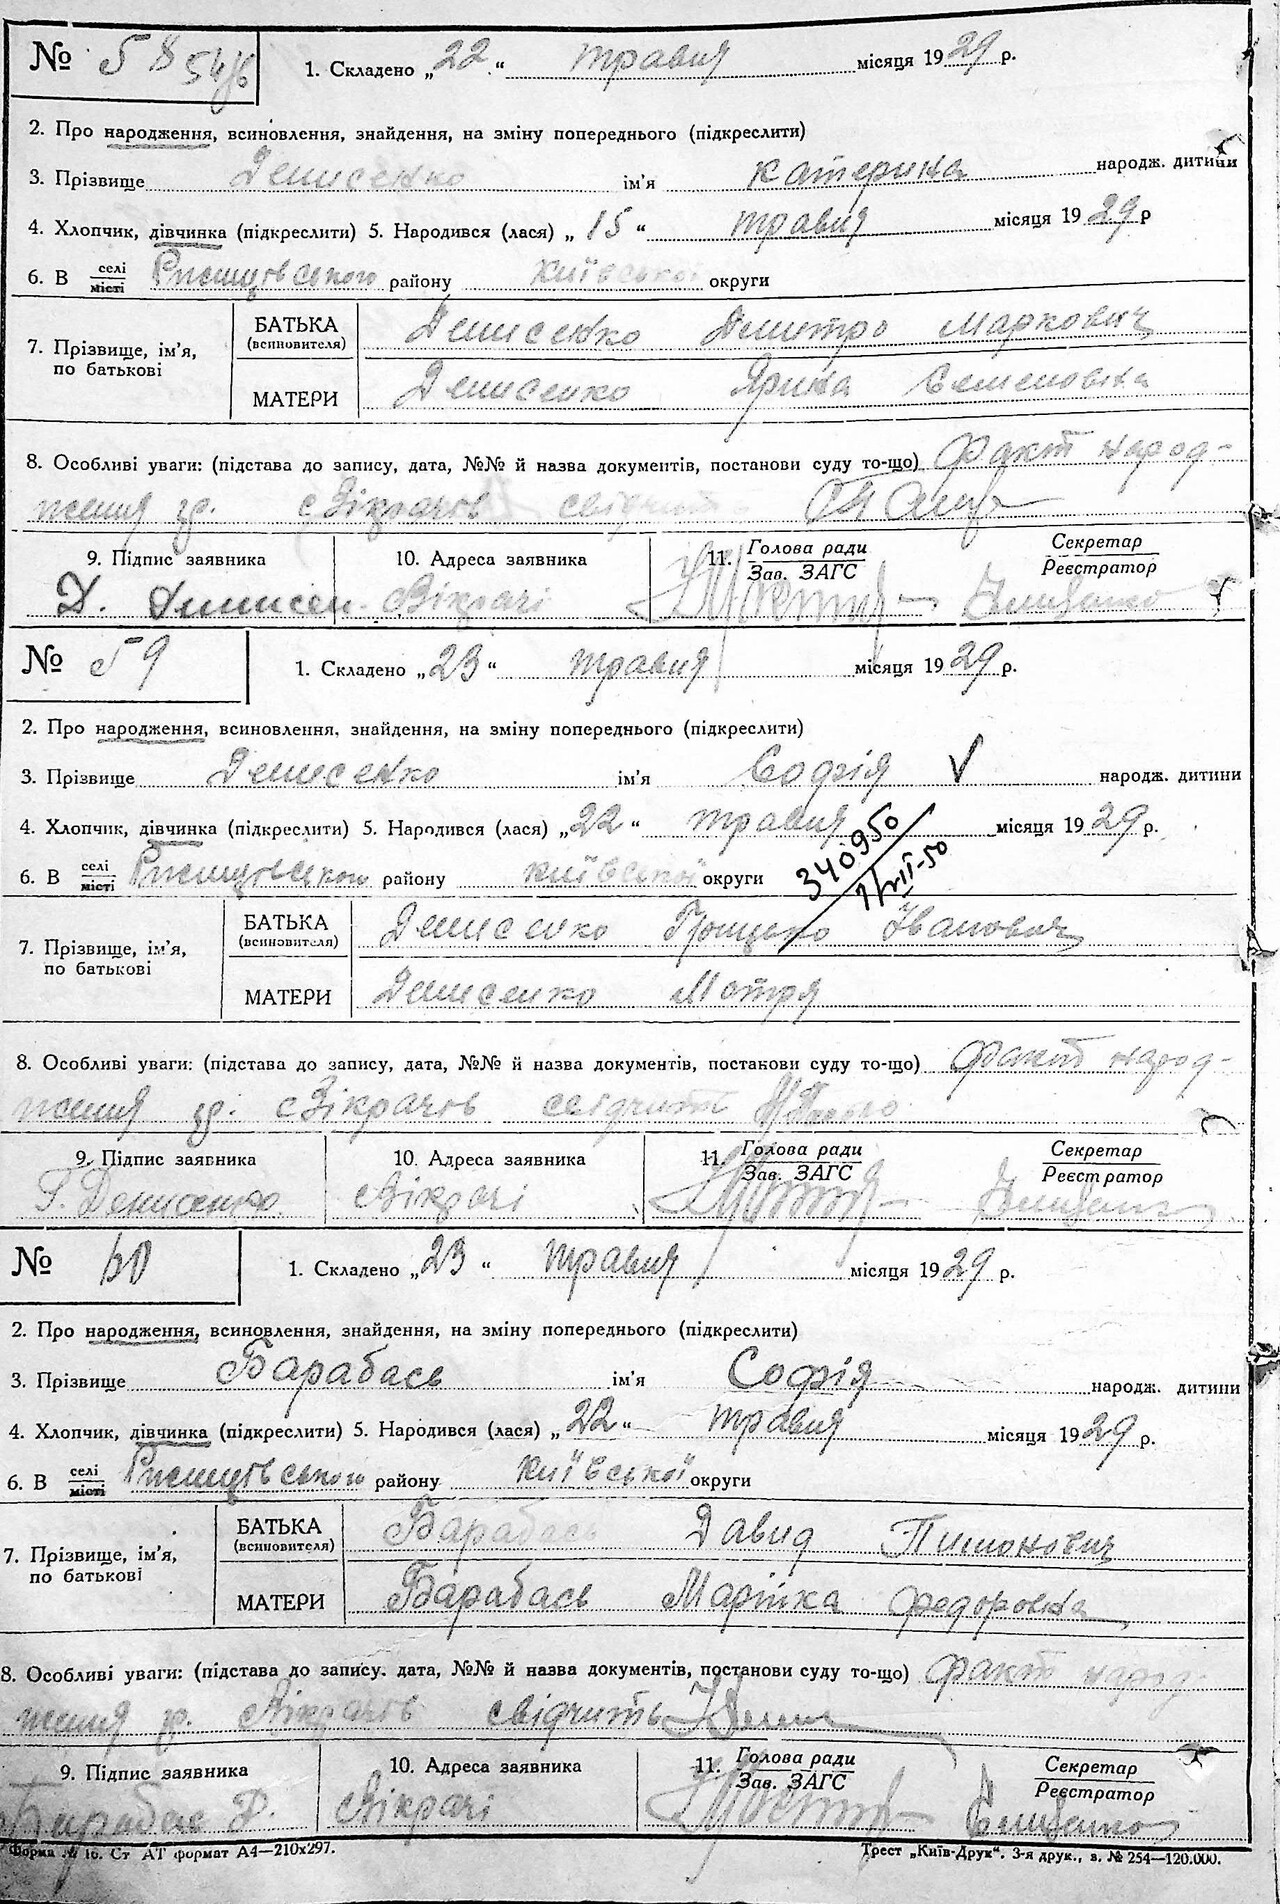 № 58 1. Складено „22“ травня місяця 1929 р.
2. Про народження, всиновлення, знайдення, на зміну попереднього (підкреслити)
3. Прізвище Денисенко ім'я Катерина народж. дитини
4. Хлопчик, дівчинка (підкреслити) 5. Народився (лася) „15“ травня місяця 1929 р
6. В селі/місті Ржищівського району Київської округи
7. Прізвище, ім'я, по батькові
БАТЬКА (всиновителя) Денисенко Дмитро Маркович
МАТЕРИ Денисенко Ярина Семеновна
8. Особливі уваги: (підстава до запису, дата, №№ й назва документів, постанови суду то-що) Факт народ-
ження гр. с Зікрачів свідчить
9. Підпис заявника 10. Адреса заявника 11. Голова ради Зав. ЗАГС Секретар Реєстратор
Д. Денисен Зікрачі
№ 59 1. Складено „23“ травня місяця 1929 р.
2. Про народження, всиновлення, знайдення, на зміну попереднього (підкреслити)
3. Прізвище Денисенко ім'я Софія народж. дитини
4. Хлопчик, дівчинка (підкреслити) 5. Народився (лася) „22“ травня місяця 1929 р.
6. В селі/місті Ржищівського району Київської округи
340950
7. Прізвище, ім'я, по батькові
БАТЬКА (всиновителя) Денисенко Грицько Іванович
МАТЕРИ Денисенко Мотря
8. Особливі уваги: (підстава до запису, дата, №№ й назва документів, постакови суду то-що) Факт народ-
ження гр. с Зікрачів свідчить
9. Підпис заявника 10. Адреса заявника 11. Голова ради Зав. ЗАГС Секретар Реєстратор
Г. Денисенко Зікрачі
№ 60 1. Складено „23“ травня місяця 1929 р.
2. Про народження, всиновлення, знайдення, на зміну попереднього (підкреслити)
3. Прізвище Барабась ім'я Софія народж. дитини
4. Хлопчик, дівчинка (підкреслити) 5. Народився (лася) „22“ травня місяця 1929 р.
6. В селі/місті Ржищівського району Київської округи
7. Прізвище, ім'я, по батькові
БАТЬКА (всиновителя) Барабась Давид Пимонович
МАТЕРИ Барабась Марійка Федоровна
8. Особливі уваги: (підстава до запису, дата, №№ й назва документів, постанови суду то-що) Факт народ
ження гр. Зікрачів свідчить
9. Підпис заявника 10. Адреса заявника 11. Голова ради Зав. ЗАГС Секретар Реєстратор
Барабас Д. Зікрачі
Форма № 16. Ст АТ формат А4—210х297. Трест „Київ-Друк“. 3-я друк., з. № 254—120.000.